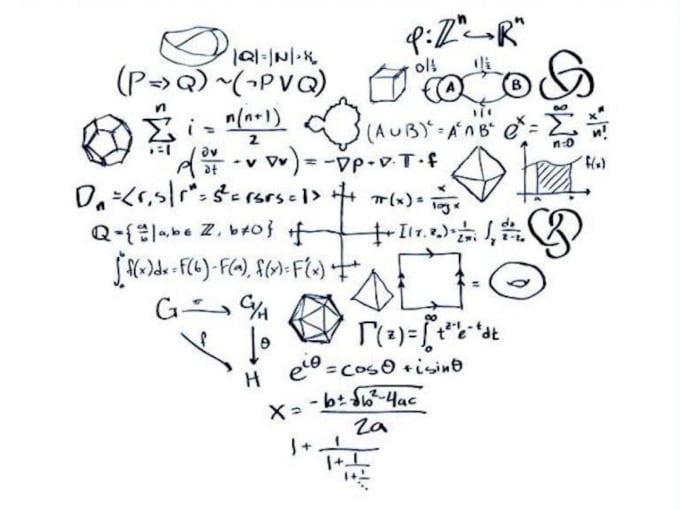 φ:ℤⁿ↪ℝⁿ
|Q|=|N|=ℵ₀
(P⇒Q)~(¬P∨Q)
0|½ 1|½
A B
1|1
n
∑ i = n(n+1)/2
i=1
(A∪B)ᶜ=Aᶜ∩Bᶜ
eˣ = ∑ xⁿ/n!
∞
n=0
ρ(∂v/∂t + v·∇v) = -∇p+∇·T+f
f(x)
a b
Dₙ=<r,s|rⁿ=s²=rsrs=1>
π(x)≈ x/log x
Q={a/b|a,b∈ℤ, b≠0}
I(γ,z₀)=1/2πi ∫γ dz/z-z₀
∫ₐᵇ f(x)dx=F(b)-F(a), f(x)=F'(x)
=
G π G/H
f θ
H
Γ(z)=∫₀^∞ t^(z-1)e^(-t)dt
e^(iθ)=cosθ+isinθ
x= -b±√b²-4ac / 2a
1+ 1/1+ 1/1+ 1/⋱